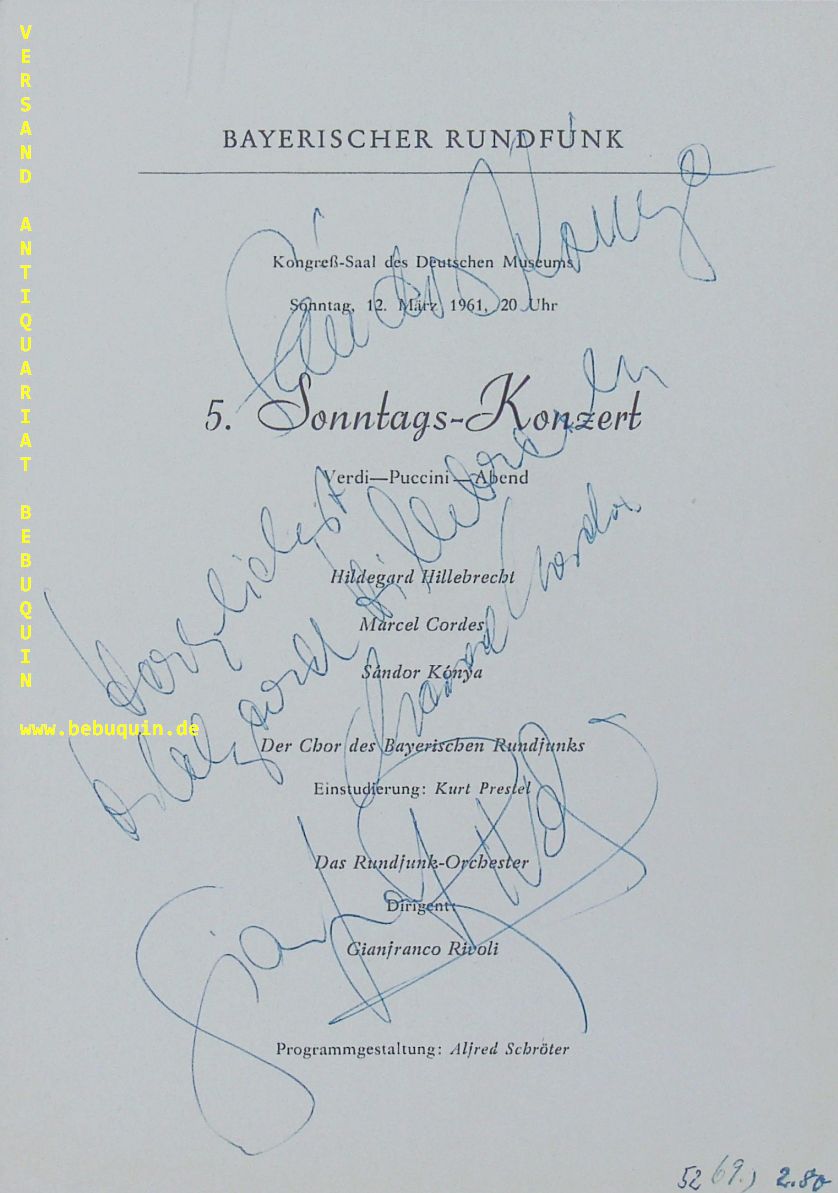 VERSAND ANTIQUARIAT BEBUQUIN
www.bebuquin.de
BAYERISCHER RUNDFUNK
Kongreß-Saal des Deutschen Museums
Sonntag, 12. März 1961, 20 Uhr
5. Sonntags-Konzert
Verdi—Puccini—Abend
Hildegard Hillebrecht
Marcel Cordes
Sándor Kónya
Der Chor des Bayerischen Rundfunks
Einstudierung: Kurt Prestel
Das Rundfunk-Orchester
Dirigent:
Gianfranco Rivoli
Programmgestaltung: Alfred Schröter
Sándor Kónya
Herzlichst
Hildegard Hillebrecht
Marcel Cordes
52 69.) 2.80